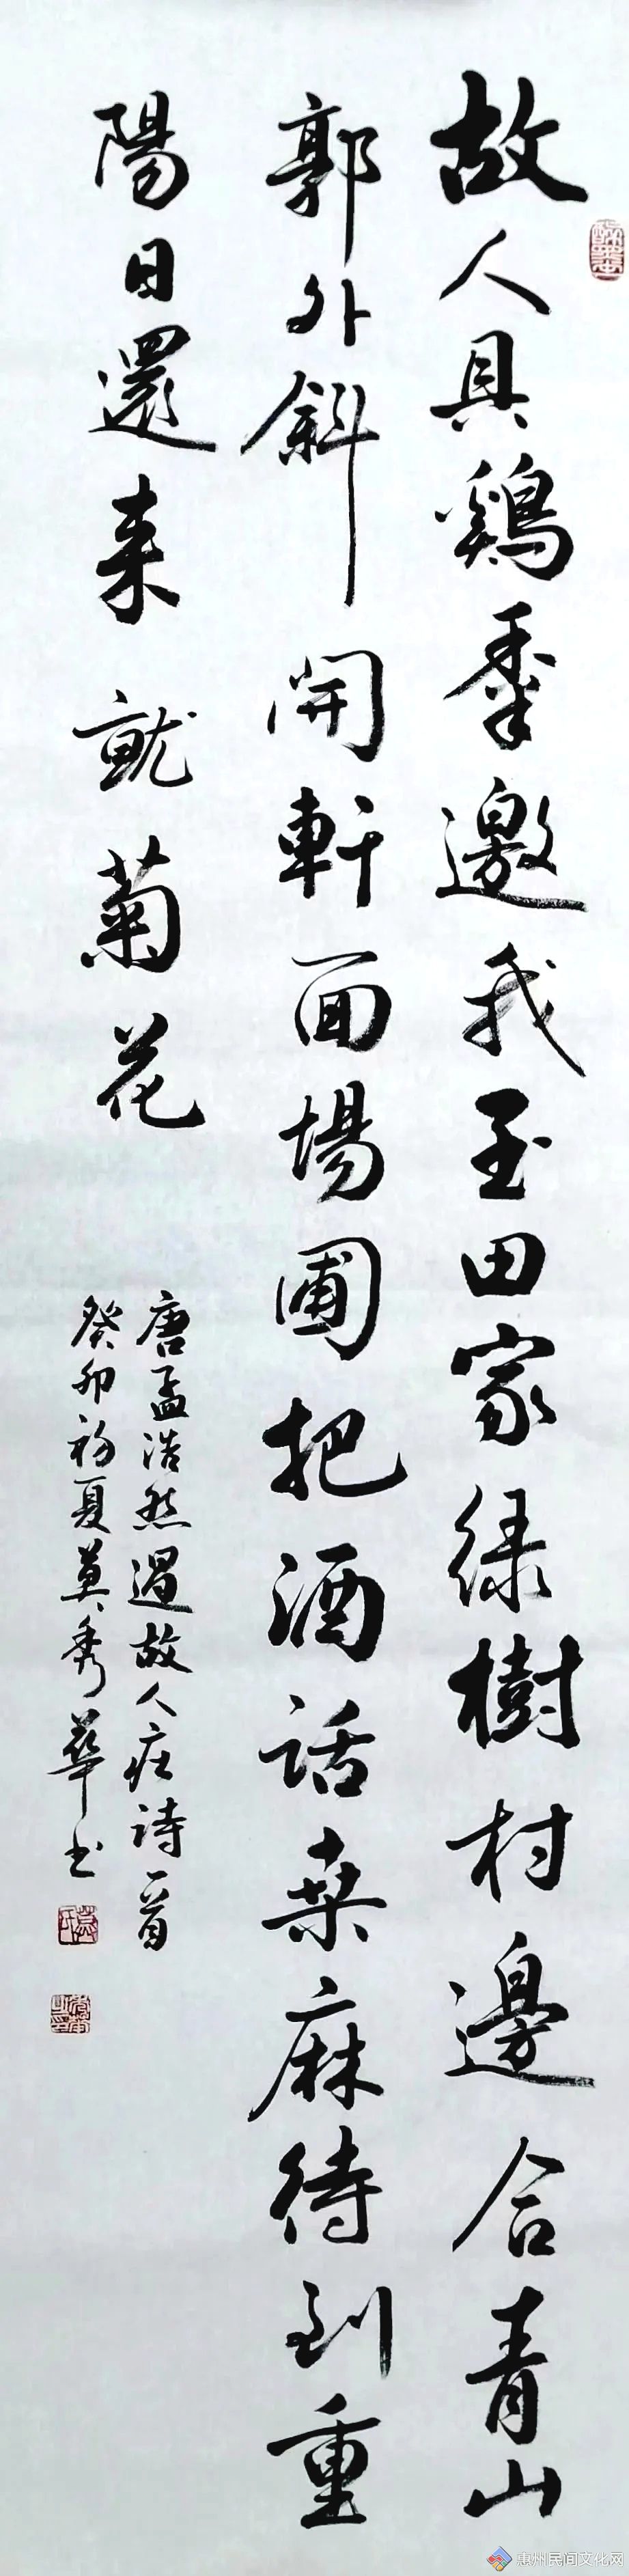 故人具鷄黍邀我至田家緑樹村邊合青山
郭外斜開軒面場圃把酒話桑麻待到重
陽日還来就菊花
唐孟浩然過故人庄詩一首
癸卯初夏莫秀華书
惠州民间文化网